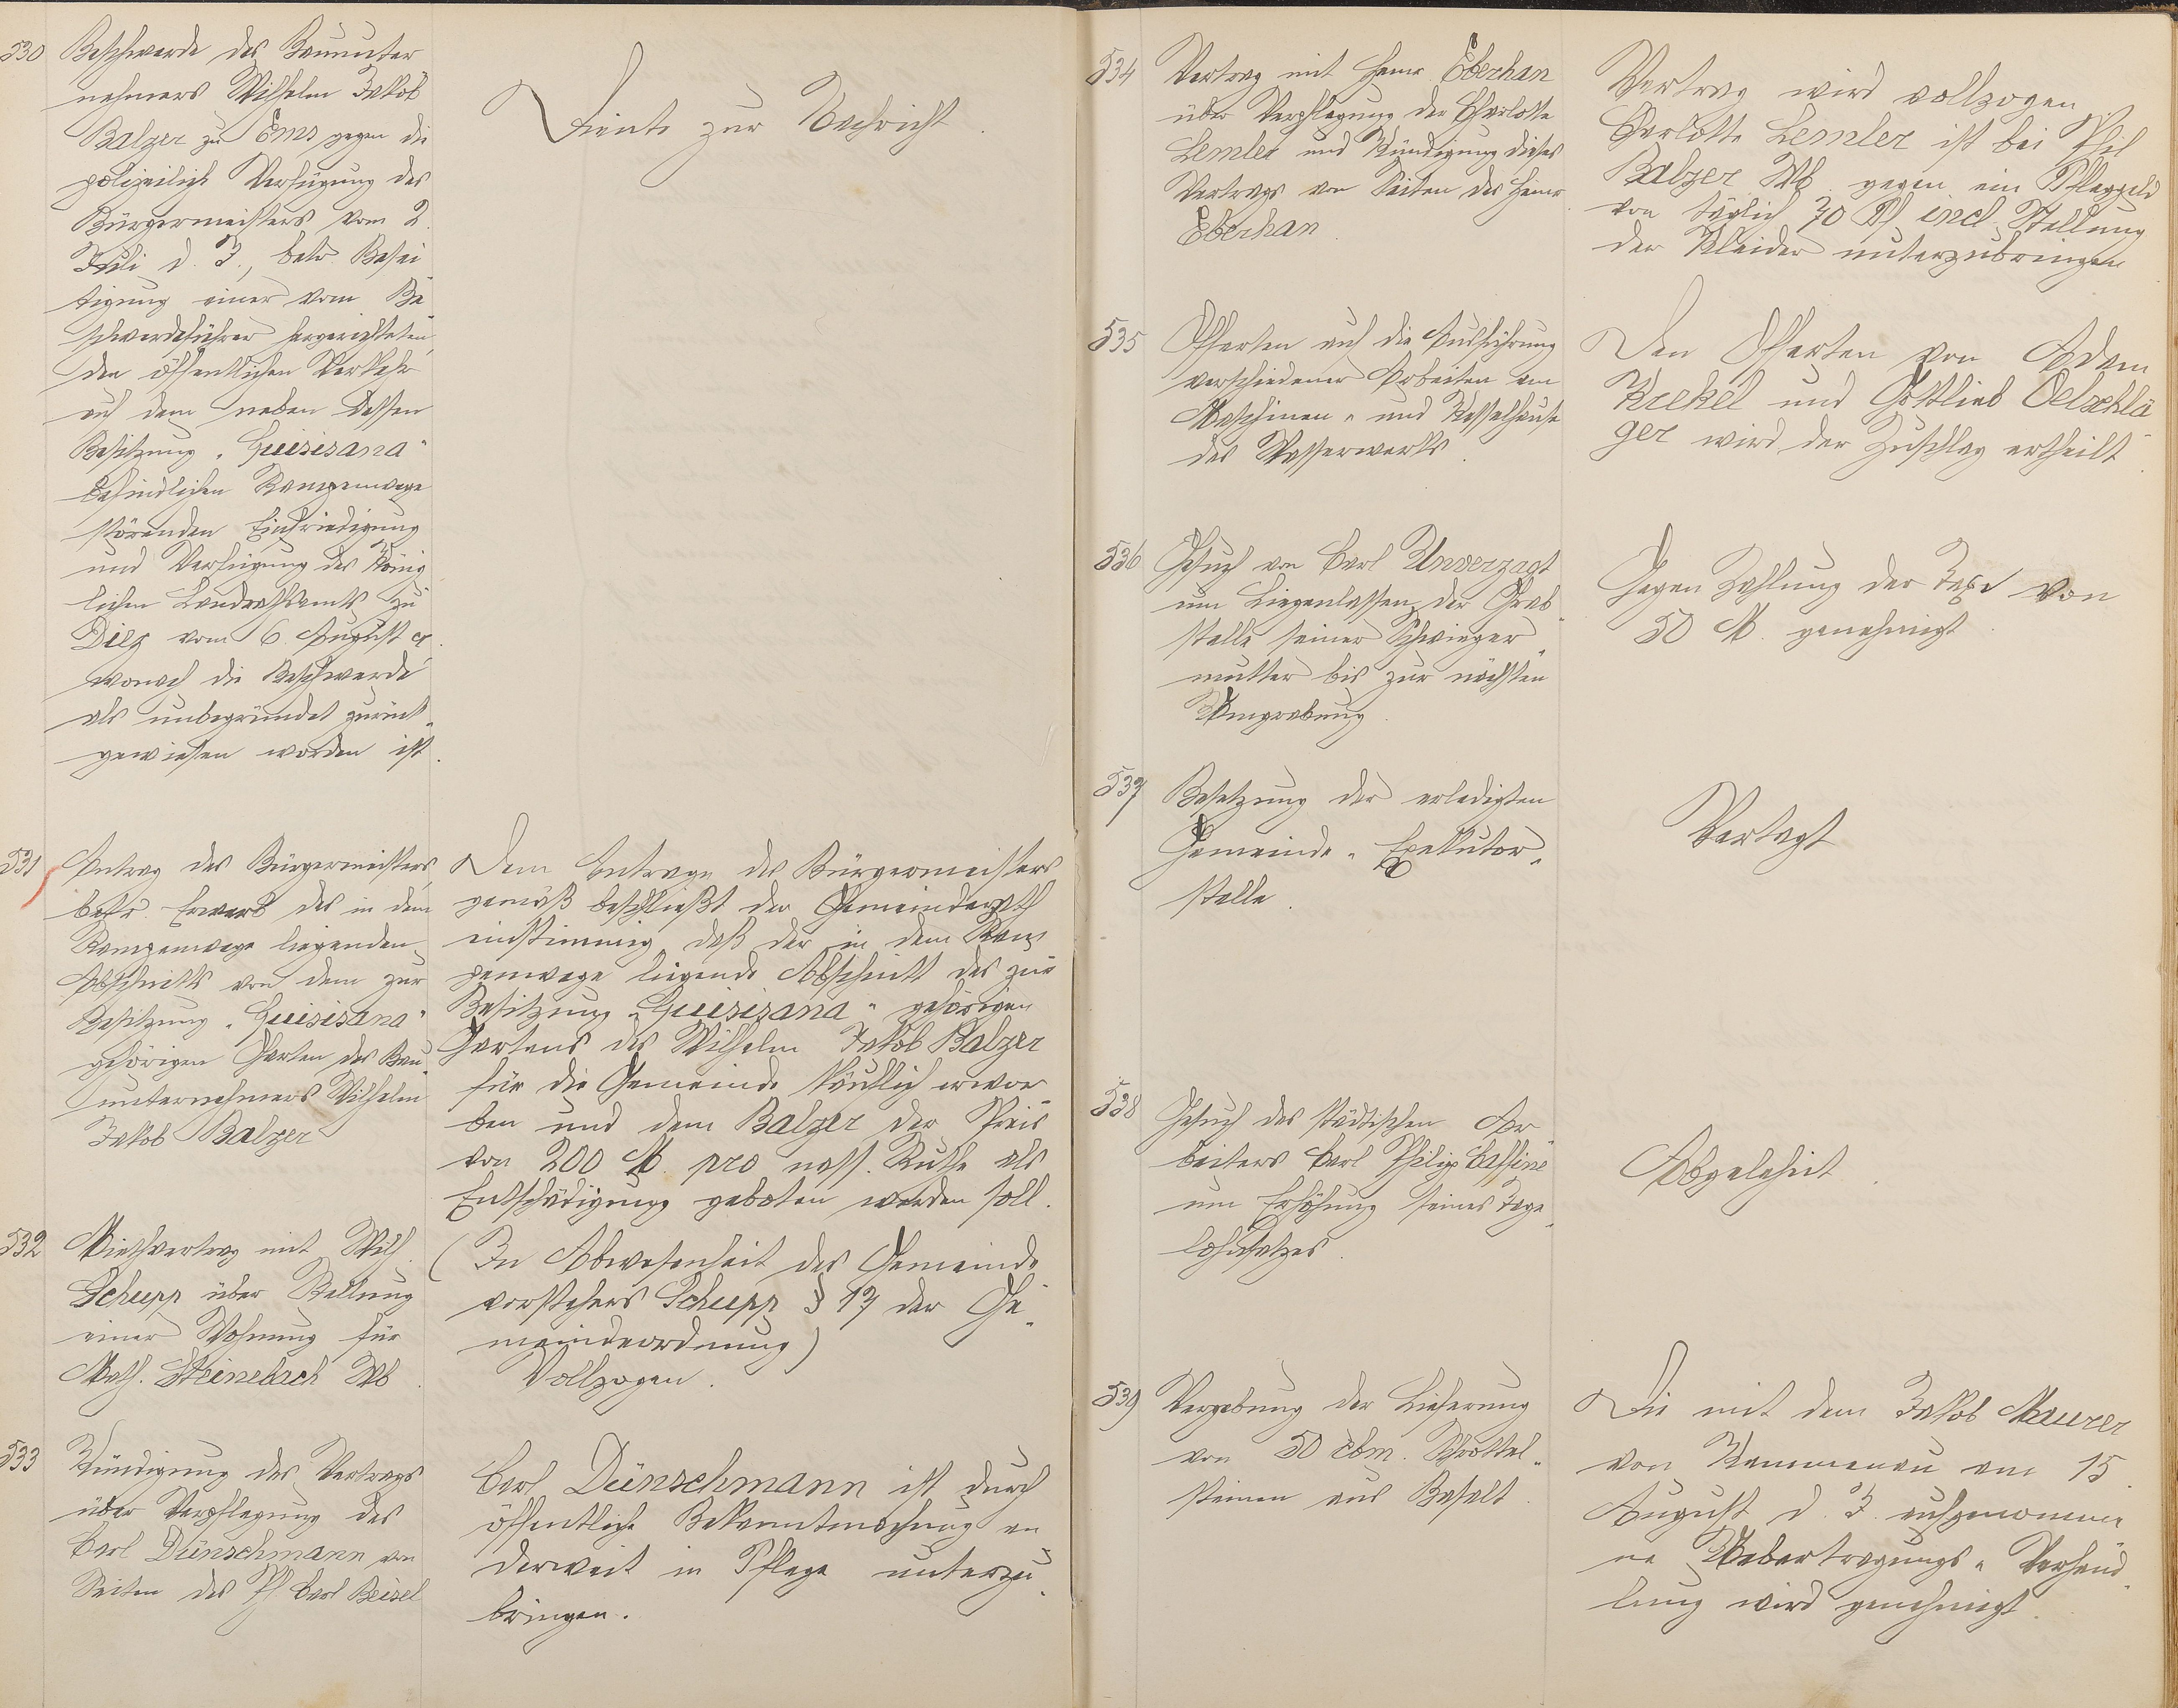 530
Beschwerde des Bauunter
nehmers Wilhelm Jakob
Balzer zu Ems gegen die
polizeilich Verfügung des
Bürgermeisters vom 2.
Juli d. J., betr. Besei
tigung einer vom Be
schwerdeführer hergerichteten,
den öffentlichen Verkehr
auf dem neben dessen
Besitzung "Quisisana"
befindlichen Rampenwege
störenden Einfriedigung
und Verfügung des König
lichen Landrathsamts zu
Diez vom 6. August cr.
wonach die Beschwerde
als unbegründet zurück-
gewiesen worden ist.
Diente zur Nachricht.
531
Antrag des Bürgermeisters
betr. Erwerb des in dem
Rampenwege liegenden
Abschnitts von dem zur
Besitzung "Quisisana"
gehörigen Garten des Bau-
unternehmers Wilhelm
Jakob Balzer
Dem Antrage des Bürgermeisters
gemäß beschließt der Gemeinderath
einstimmig, daß der in dem Ram
penwege liegende Abschnitt des zur
Besitzung "Quisisana" gehörigen
Gartens des Wilhelm Jakob Balzer
für die Gemeinde käuflich erwor
ben und dem Balzer der Preis
von 200 M. pro nass. Ruthe als
Entschädigung geboten werden soll.
532
Miethvertrag mit Wilh.
Schupp über Stellung
einer Wohnung für
Math. Steinebach Wb.
(In Abwesenheit des Gemeinde
vorstehers Schupp § 17 der Ge-
meindeordnung)
Vollzogen.
533
Kündigung des Vertrags
über Verpflegung des
Carl Dünschmann von
Seiten des Ph. Carl Beisel
Carl Dünschmann ist durch
öffentliche Bekanntmachung an
derweit in Pflege unterzu-
bringen.
534
Vertrag mit Heinr. Eberhan
über Verpflegung der Charlotte
Lemler und Kündigung dieses
Vertrags von Seiten des Heinr.
Eberhan.
Vertrag wird vollzogen
Charlotte Lemler ist bei Phil
Balzer Wb. gegen ein Pflegegeld
von täglich 70 Pf incl. Stellung
der Kleider unterzubringen
535
Offerten auf die Ausführung
verschiedener Arbeiten am
Maschinen- und Kesselhause
des Wasserwerks.
Den Offerten von Adam
Krekel und Gottlieb Oelschlä
ger wird der Zuschlag ertheilt.
536
Gesuch von Carl Unverzagt
um Liegenlassen der Grab
stelle seiner Schwieger-
mutter bis zur nächsten
Umgrabung.
Gegen Zahlung der Taxe von
50 M. genehmigt.
537
Besetzung der erledigten
Gemeinde-Exekutor-
stelle.
Vertagt
538
Gesuch des städtischen Ar
beiters Carl Philipp
um Erhöhung seines Tage-
lohnsatzes.
Abgelehnt.
539
Vergebung der Lieferung
von 50 cbm. Schrottel-
steinen aus Basalt.
Die mit dem Jakob Maurer
von Kemmenau am 15.
August d. J. aufgenomme
ne Uebertragungs-Verhand
lung wird genehmigt.